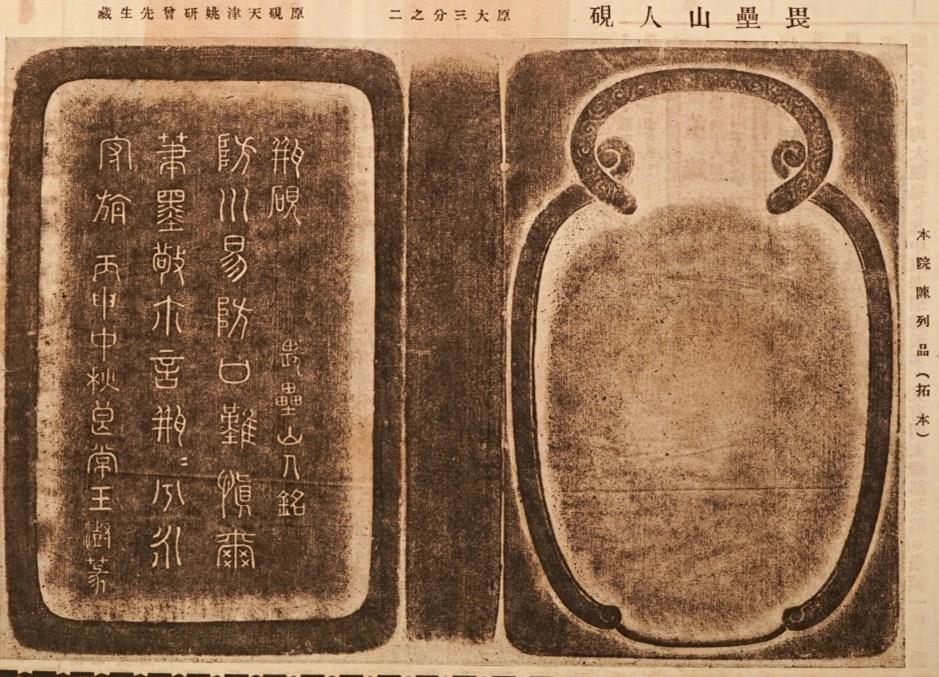 畏壘山人硯
原大三分之二
原硯天津姚研曾先生藏
本院陳列品（拓本）
瓶硯 畏壘山人銘
防川易防口難慎爾
筆墨敬尒言瓶〻兮永
守旃 丙申中秋良常王澍篆